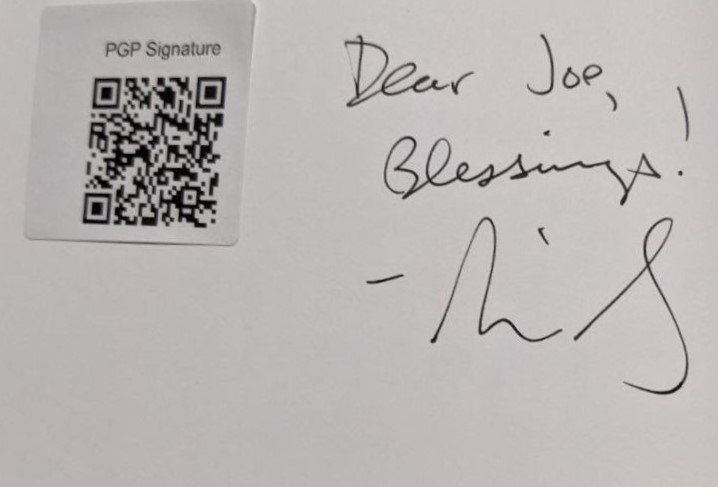 PGP Signature
Dear Joe,
Blessings!